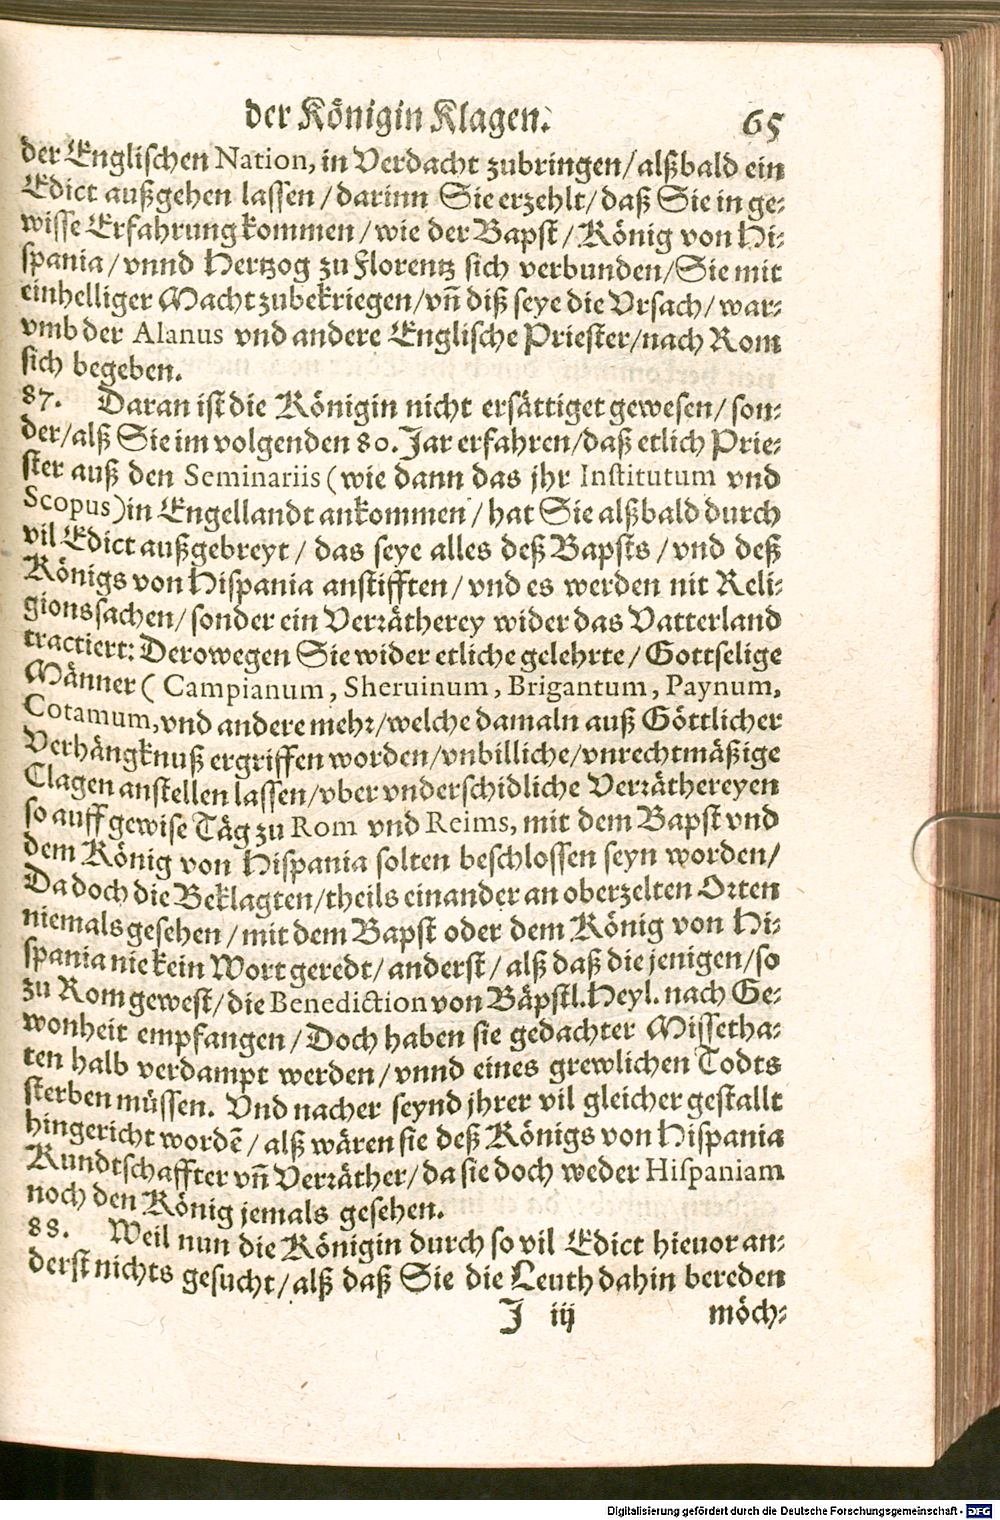 der Königin Klagen. 65
der Englischen Nation, in Verdacht zubringen/ alßbald ein
Edict außgehen lassen / darinn Sie erzehlt/ daß Sie in ge-
wisse Erfahrung kommen / wie der Bapst / König von Hi-
spania / vnnd Hertzog zu Florentz sich verbunden/ Sie mit
einhelliger Macht zubekriegen/ vñ diß seye die Vrsach/ war-
vmb der Alanus vnd andere Englische Priester/ nach Rom
sich begeben.
87. Daran ist die Königin nicht ersättiget gewesen/ son-
der/ alß Sie im volgenden 80. Jar erfahren/ daß etlich Prie-
ster auß den Seminariis (wie dann das jhr Institutum vnd
Scopus) in Engellandt ankommen / hat Sie alßbald durch
vil Edict außgebreyt / das seye alles deß Bapsts / vnd deß
Königs von Hispania anstifften / vnd es werden nit Reli-
gionssachen/ sonder ein Verrätherey wider das Vatterland
tractiert: Derowegen Sie wider etliche gelehrte / Gottselige
Männer ( Campianum, Sheruinum, Brigantum, Paynum,
Cotamum, vnd andere mehr/ welche damaln auß Göttlicher
Verhängknuß ergriffen worden/ vnbilliche/ vnrechtmäßige
Clagen anstellen lassen/ vber vnderschidliche Verräthereyen
so auff gewise Täg zu Rom vnd Reims, mit dem Bapst vnd
dem König von Hispania solten beschlossen seyn worden/
Da doch die Beklagten/ theils einander an oberzelten Orten
niemals gesehen / mit dem Bapst oder dem König von Hi-
spania nie kein Wort geredt/ anderst / alß daß die jenigen/ so
zu Rom gewest/ die Benediction von Bäpstl. Heyl. nach Ge-
wonheit empfangen / Doch haben sie gedachter Missetha-
ten halb verdampt werden / vnnd eines grewlichen Todts
sterben müssen. Vnd nacher seynd jhrer vil gleicher gestallt
hingericht wordē / alß wären sie deß Königs von Hispania
Kundtschaffter vñ Verräther/ da sie doch weder Hispaniam
noch den König jemals gesehen.
88. Weil nun die Königin durch so vil Edict hieuor an-
derst nichts gesucht / alß daß Sie die Leuth dahin bereden
J iij möch-
Digitalisierung gefördert durch die Deutsche Forschungsgemeinschaft - DFG